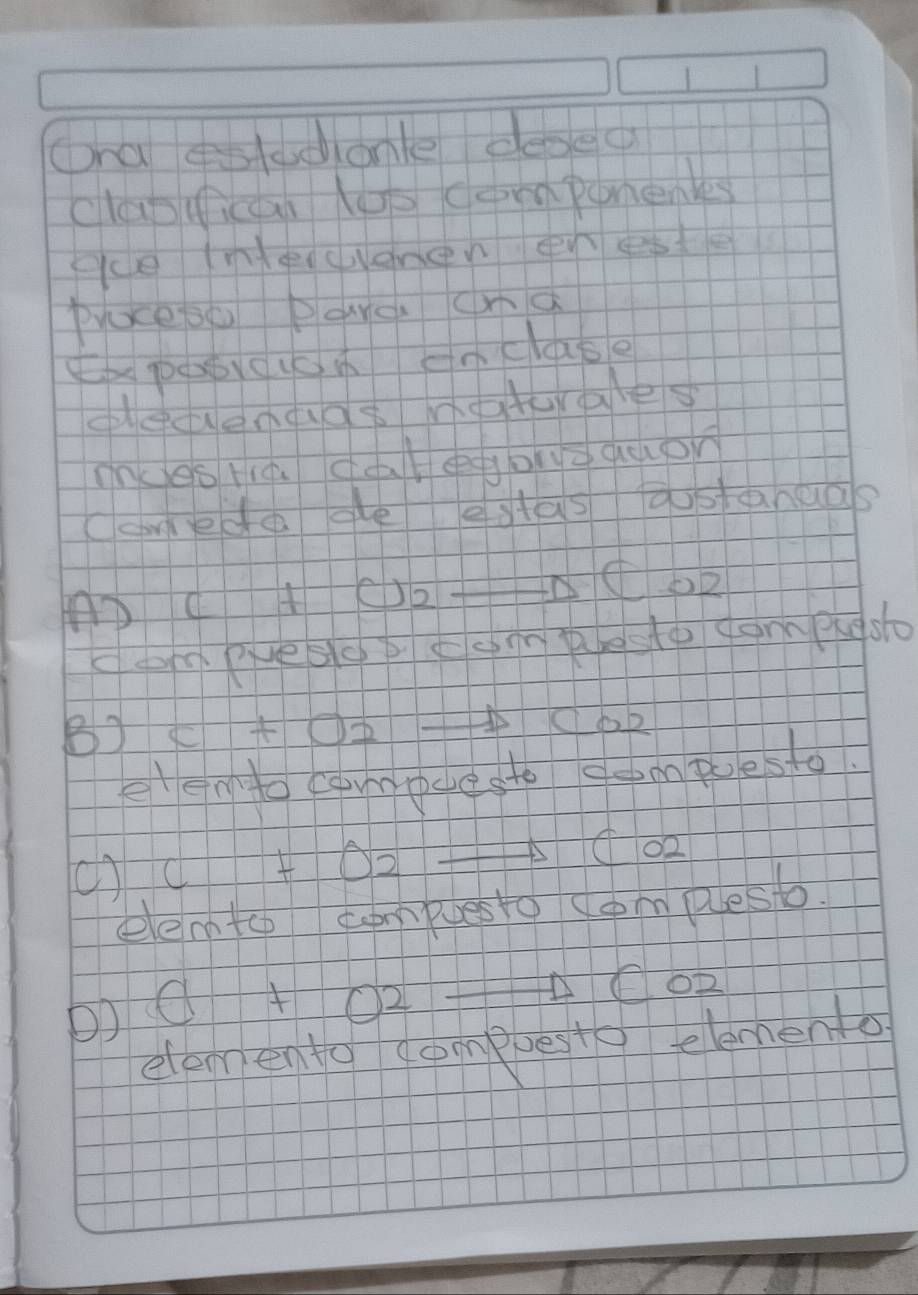 Una estudiante desea
clasifican los componentes
que intervienen en este
proceso para una
Exposición en clase
de ciencias naturales
muestra categorización
correcta de estas sustancias
A) C + O2 → CO2
compuestos compuesto compuesto
B) C + O2 → CO2
elemto compuesto compuesto.
C) C + O2 → CO2
elemto compuesto compuesto.
D) C + O2 → CO2
elemento compuesto elemento.